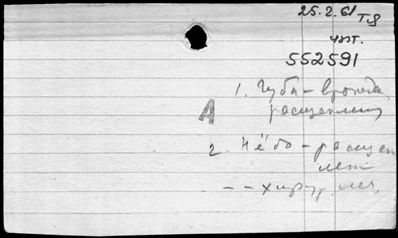 25.2.61 Т8
чит.
552591
1. Губа - врожд.
расщеплен
А
2. Нёбо - расщеп
лен
-- хирур. леч.